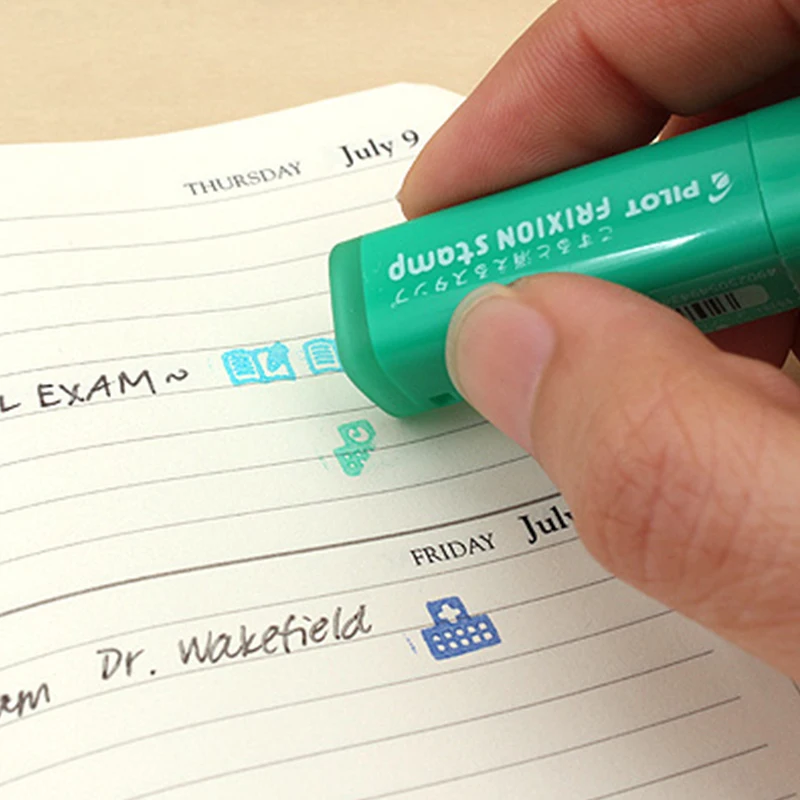 THURSDAY July 9
PILOT FRIXION stamp
こすると消えるスタンプ
L EXAM~
FRIDAY July
am Dr. Wakefield